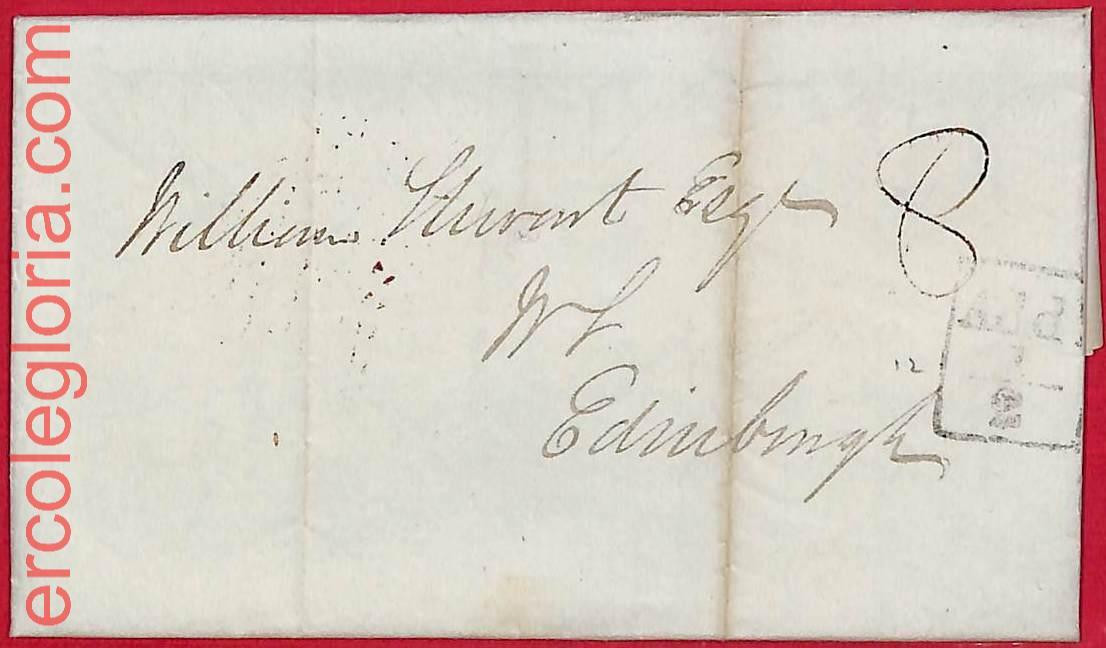 ercolegloria.com
William Stewart Esqr
8
WS
Edinburgh
12